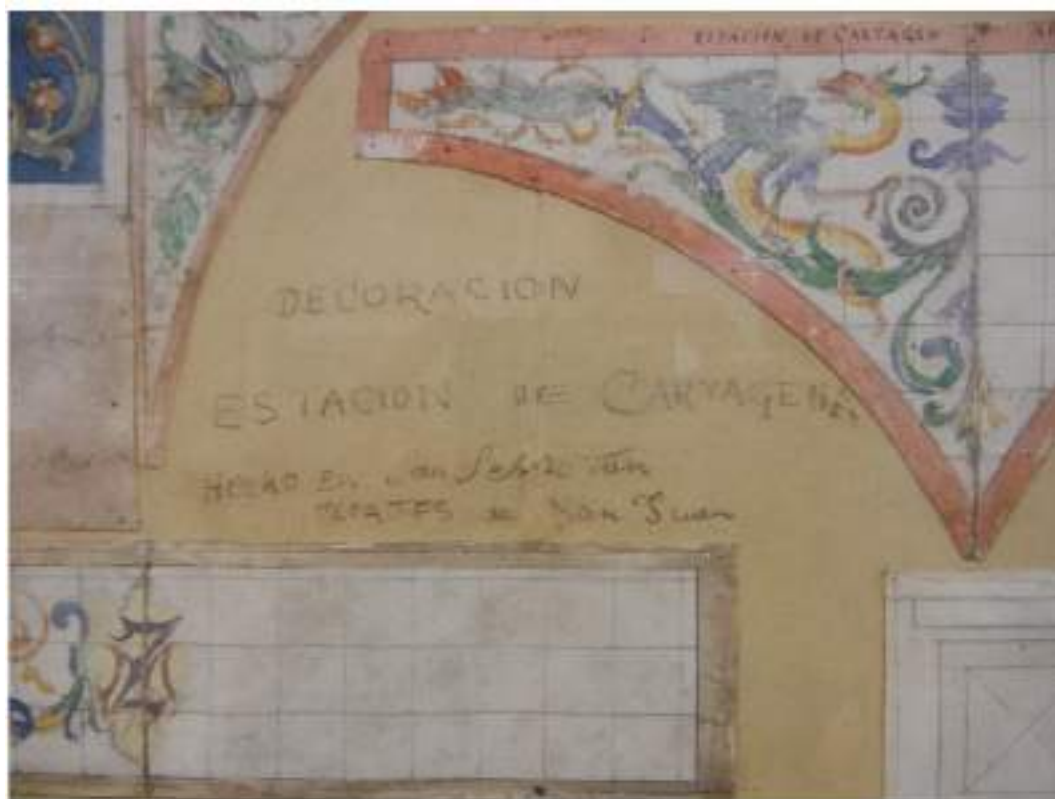 ESTACION DE CARTAGEN
DECORACION
ESTACION DE CARTAGENA
HECHO EN San Sebastian
de Don Juan